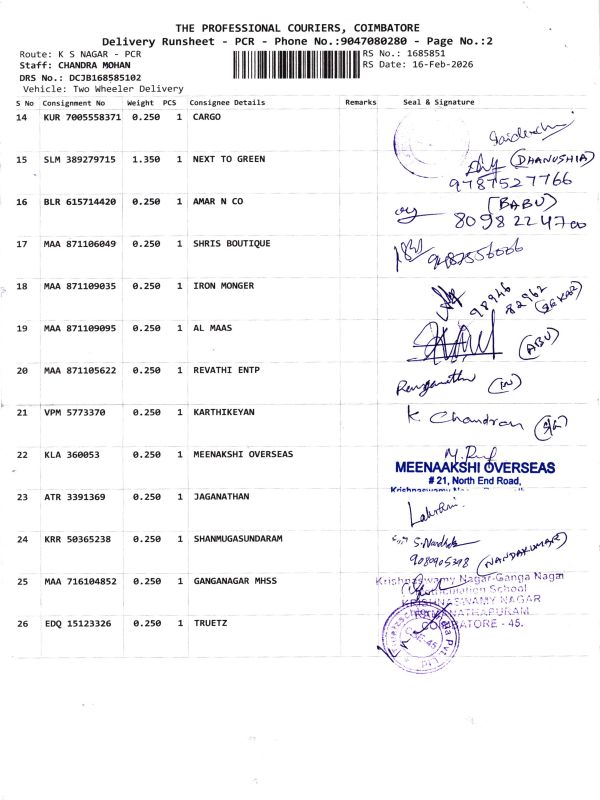 THE PROFESSIONAL COURIERS, COIMBATORE
Delivery Runsheet - PCR - Phone No.:9047080280 - Page No.:2
Route: K S NAGAR - PCR
RS No.: 1685851
Staff: CHANDRA MOHAN
RS Date: 16-Feb-2026
DRS No.: DCJB168585102
Vehicle: Two Wheeler Delivery
S No Consignment No Weight PCS Consignee Details Remarks Seal & Signature
14 KUR 7005558371 0.250 1 CARGO
15 SLM 389279715 1.350 1 NEXT TO GREEN (DHANUSHIA)
9787527766
16 BLR 615714420 0.250 1 AMAR N CO (BABU)
8098224700
17 MAA 871106049 0.250 1 SHRIS BOUTIQUE
18 MAA 871109035 0.250 1 IRON MONGER 98946 82962
19 MAA 871109095 0.250 1 AL MAAS (ABU)
20 MAA 871105622 0.250 1 REVATHI ENTP (IN)
21 VPM 5773370 0.250 1 KARTHIKEYAN K Chandran
22 KLA 360053 0.250 1 MEENAKSHI OVERSEAS
MEENAAKSHI OVERSEAS
# 21, North End Road,
23 ATR 3391369 0.250 1 JAGANATHAN
24 KRR 50365238 0.250 1 SHANMUGASUNDARAM
9080905398 (NANDAKUMAR)
25 MAA 716104852 0.250 1 GANGANAGAR MHSS Krishnaswamy Nagar-Ganga Nagar
Matriculation School
KRISHNASWAMY NAGAR
RAMANATHAPURAM,
COIMBATORE - 45.
26 EDQ 15123326 0.250 1 TRUETZ